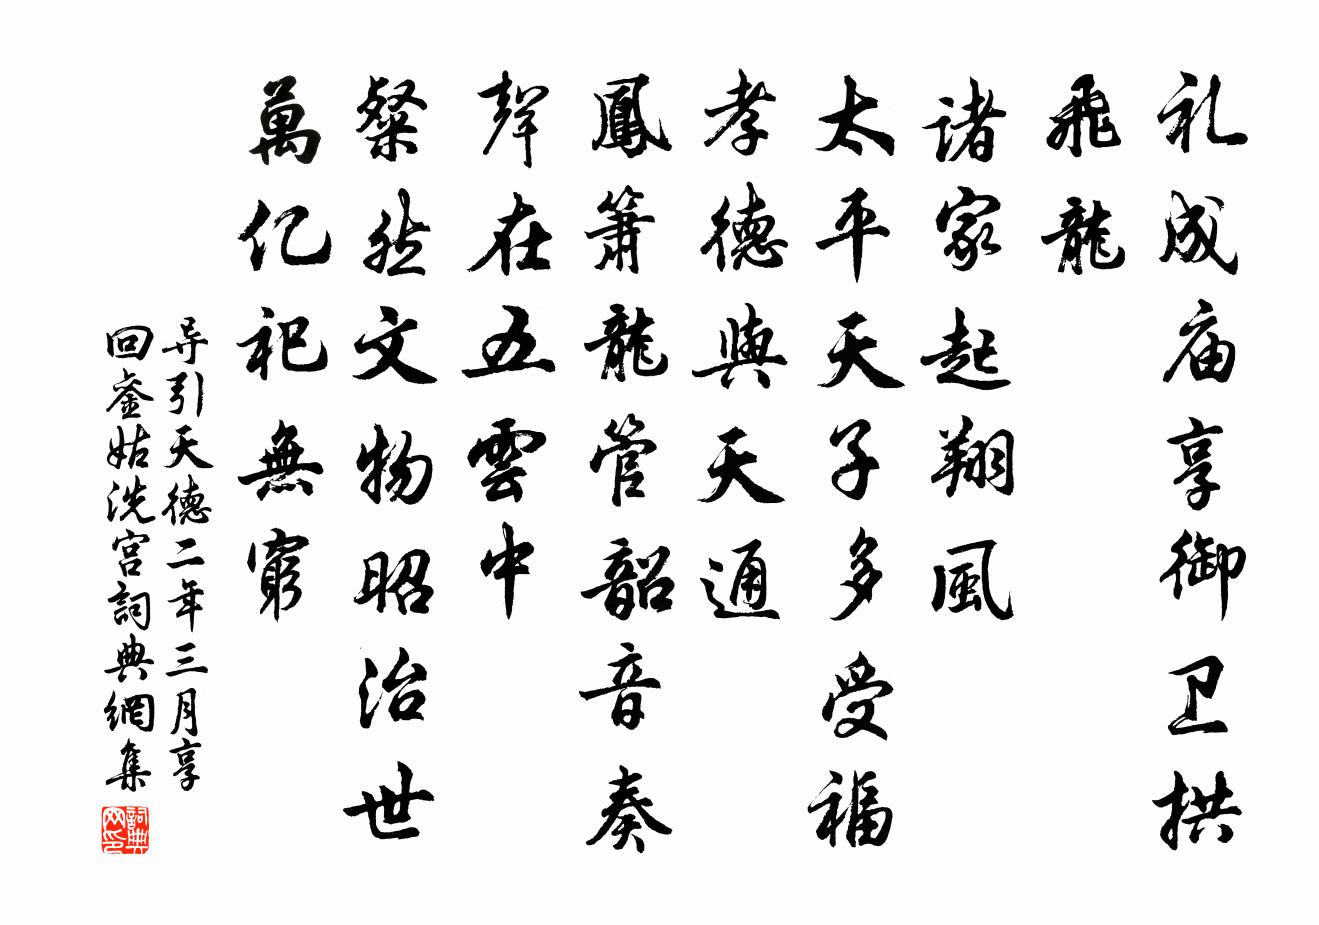 礼成庙享御卫拱
飛龍
诸家起翔風
太平天子多受福
孝德與天通
鳳簫龍管韶音奏
聲在五雲中
粲然文物昭治世
萬亿祀無窮
导引天德二年三月享
回銮姑洗宫詞典網集
詞典
网印